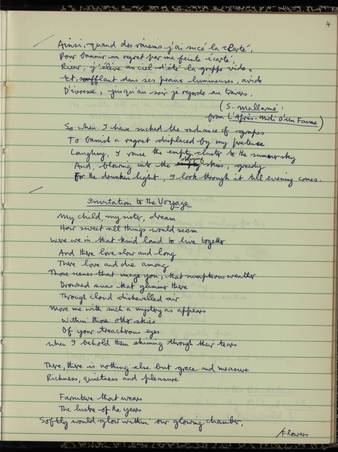 4
Ainsi, quand des raisins j'ai sucé la clarté,
Pour bannir un regret par ma feinte écarté,
Rieur, j'élève au ciel d'été la grappe vide,
Et, soufflant dans ses peaux lumineuses, avide
D'ivresse, jusqu'au soir je regarde au travers.
(S. Mallarmé:
from L'Après-Midi D'un Faune)
So when I have sucked the radiance of grapes
To banish a regret displaced by my pretence
Laughing, I raise the empty cluster to the summer sky
And, blowing into the skins, greedy
For the drunken light, I look through it till evening comes.
Invitation to the Voyage
My child, my sister, dream
How sweet all things would seem
Were we in that kind land to live together
And there love slow and long
There love and die among
Those scenes that image you, that sumptuous weather
Drowned suns that glimmer there
Through cloud dishevelled air
Move me with such a mystery as appears
Within those other skies
Of your treacherous eyes
When I behold them shining through their tears
There, there is nothing else but grace and measure
Richness, quietness and pleasure
Furniture that wears
The lustre of the years
Softly would glow within our glowing chamber,
Flowers